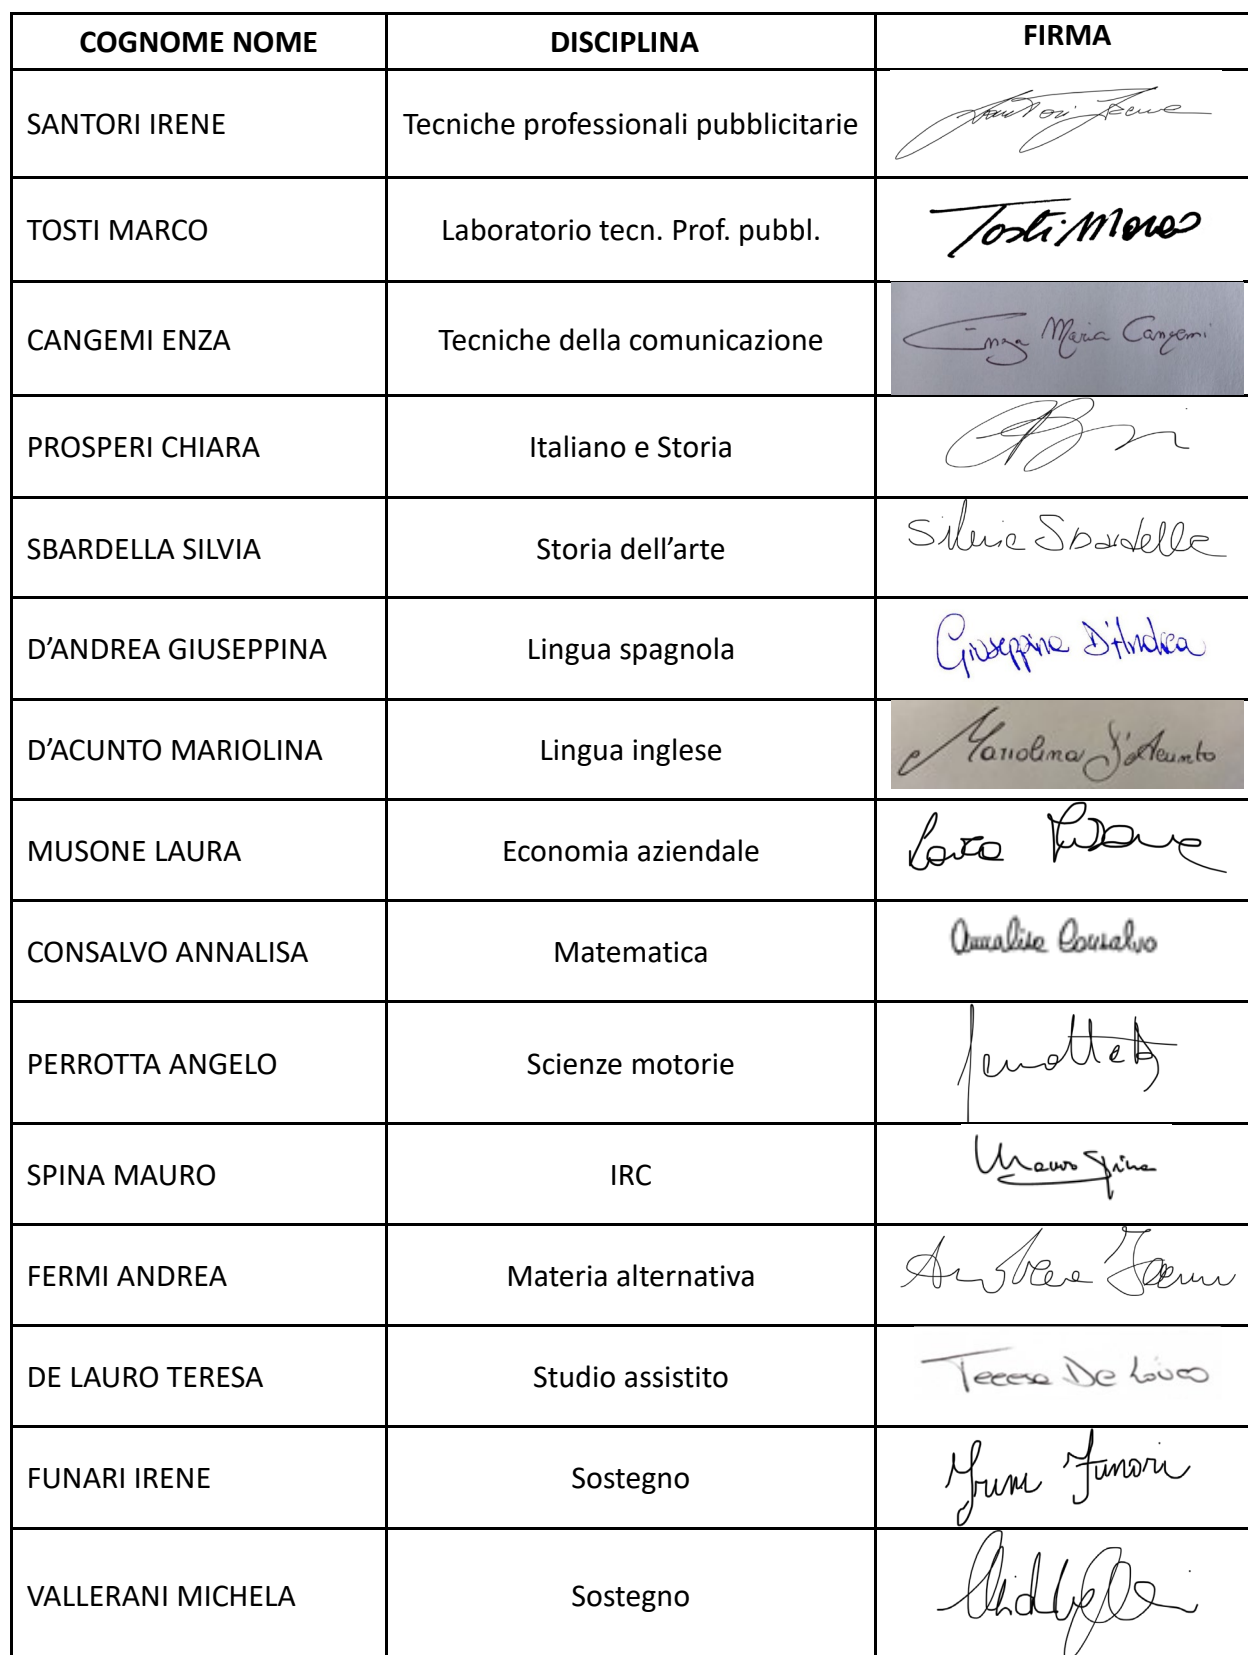 COGNOME NOME DISCIPLINA FIRMA
SANTORI IRENE Tecniche professionali pubblicitarie Santori Irene
TOSTI MARCO Laboratorio tecn. Prof. pubbl. Tosti Marco
CANGEMI ENZA Tecniche della comunicazione Enza Maria Cangemi
PROSPERI CHIARA Italiano e Storia
SBARDELLA SILVIA Storia dell’arte Silvia Sbardella
D’ANDREA GIUSEPPINA Lingua spagnola Giuseppina D'Andrea
D’ACUNTO MARIOLINA Lingua inglese Mariolina D'Acunto
MUSONE LAURA Economia aziendale Laura Musone
CONSALVO ANNALISA Matematica Annalisa Consalvo
PERROTTA ANGELO Scienze motorie
SPINA MAURO IRC Mauro Spina
FERMI ANDREA Materia alternativa Andrea Fermi
DE LAURO TERESA Studio assistito Teresa De Lauro
FUNARI IRENE Sostegno Irene Funari
VALLERANI MICHELA Sostegno